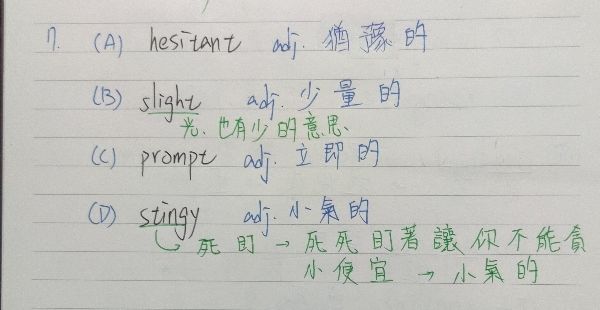 7. (A) hesitant adj. 猶豫的
(B) slight adj. 少量的
光、也有少的意思、
(C) prompt adj. 立即的
(D) stingy adj. 小氣的
死盯 → 死死盯著讓你不能貪
小便宜 → 小氣的